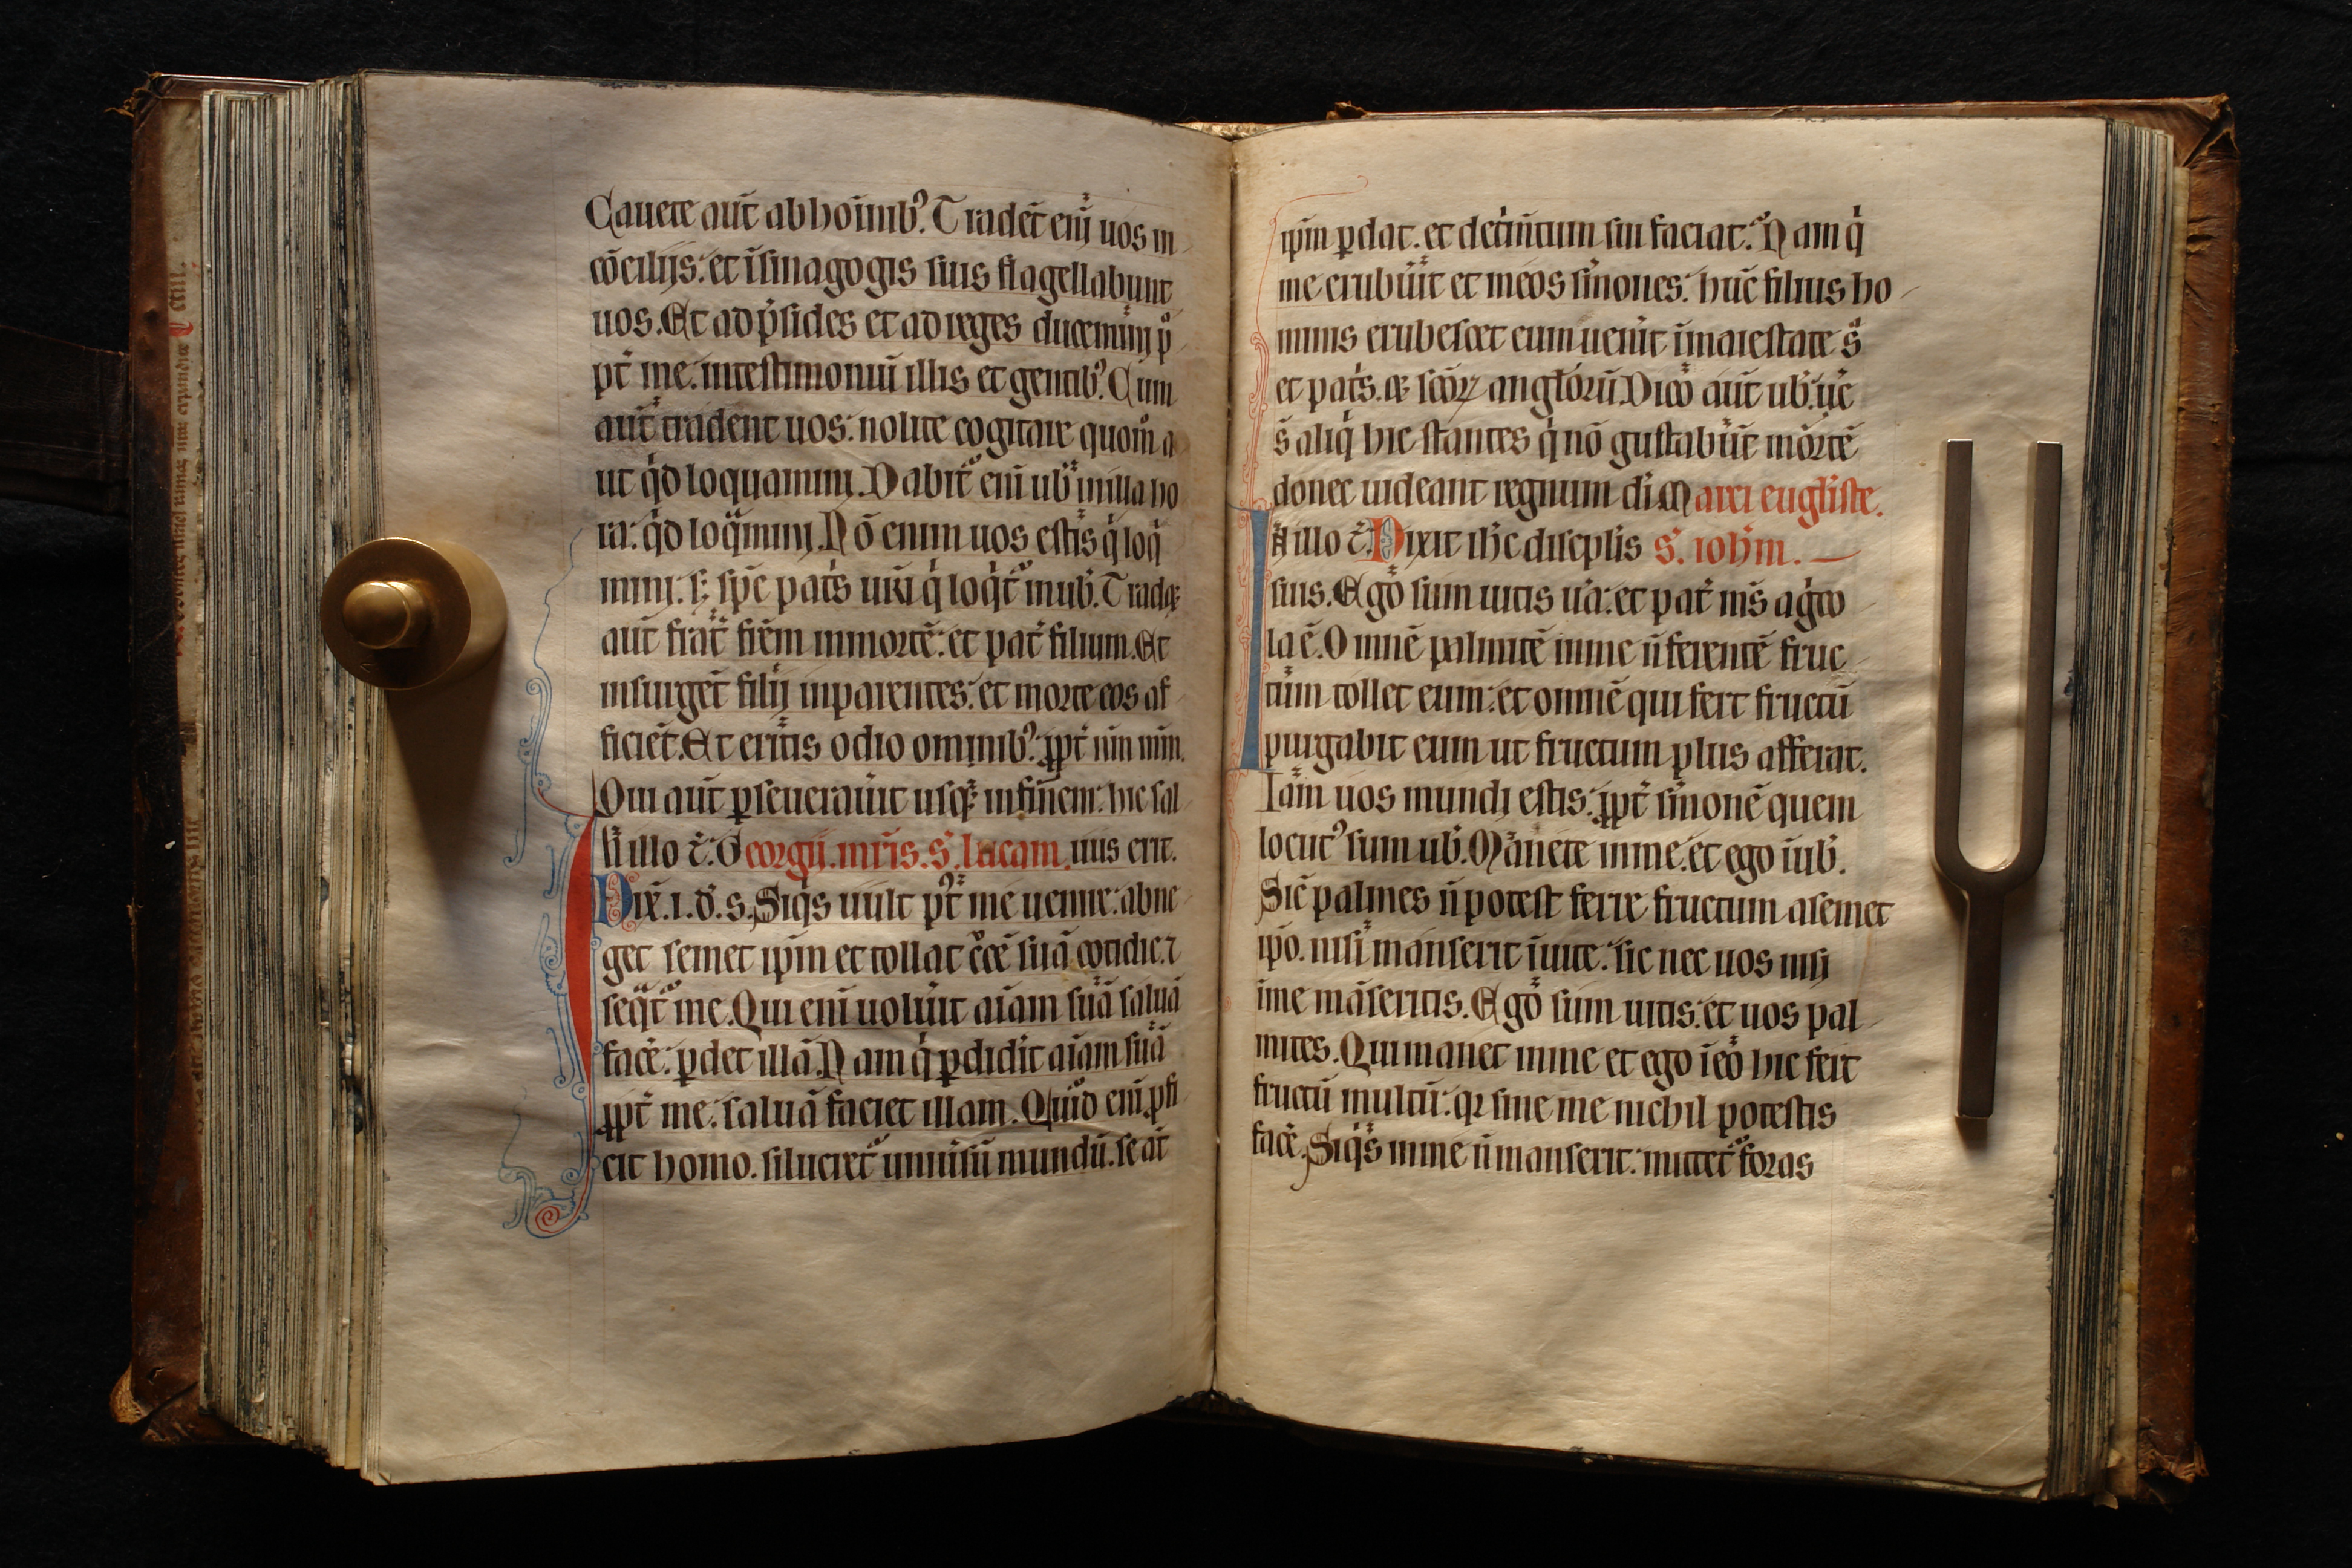 Cauete aut̄ ab hoı̄nibꝰ. Tradēt enī uos in
cōcilijs: et ī sinagogis suis flagellabunt
uos. Et ad p̄sides et ad reges ducemini p̄
pt̄ me: in testimoniū illis et gentibꝰ. Cum
aut̄ tradent uos: nolite cogitare quom̄
ut qͥd loquamini. Dabit̄ enī uob̄ in illa ho
ra: qͥd loqͣmini. Nō enim uos estis qͥ loqͥ
mini. s; sp̄c pat̄s ur̄i qͥ loqͥt̄ in uob̄. Tradꝫ
aut̄ frat̄ fr̄em in mortē: et pat̄ filium. Et
insurgēt filij in parentes: et morte eos af
ficiēt. Et eritis odio omnibꝰ. ꝓpt̄ nm̄ mm̄.
Qui aut̄ ꝑseuerau̅it usqꝫ in finem: hic sal
In illo t̄. Georgij. mr̄is. s̄. lucam. uus erit.
Dix̄. i. d̄. s. Siqͥs uult pꝰt̄ me uenire: abne
get semet ip̄m et tollat c̄ce suā cotidie. ⁊
seqͣt̄ me. Qui enī uolūit aı̄am suā saluā
facē: ꝑdet illā. Nam qͥ ꝑdidit aı̄am suā
ꝓpt̄ me: saluā faciet illam. Quid enī ꝓfi
cit homo. si lucret̄ uniu̅sū mundū. se at̄
ip̄m ꝑdat. et det̄mı̄tum sui faciat. Nam qͥ
me erubūit et meos sm̄ones: hūc filius ho
minis erubescet cum uen̄it ī maiestate s̄
et pat̄s. ⁊ sc̄oꝝ angl̄orū. Dico aut̄ uob̄. uē
s̄ aliqͥ hic stantes qͥ nō gustabūt mortē
donec uideant regnum di̅ Marci eugl̄iste.
In illo t̄. Dixit ih̄c discip̄lis s̄. ioh̄m.
suis. Ego sum uitis uā: et pat̄ m̄s agͥco
la ē. Omnē palmitē in me n̄ ferentē fruc
tum tollet eum: et omnē qui fert fructū
purgabit eum ut fructum plus afferat.
Iam uos mundi estis: ꝓpt̄ sm̄onē quem
locutꝰ sum uob̄. Manete in me. et ego ī uob̄.
Sic̄ palmes n̄ potest ferre fructum a semet
ip̄o. nisi manserit ī uite: sic nec uos nisi
ī me māseritis. Ego sum uitis: et uos pal
mites. Qui manet in me et ego ı̄ eo hic fert
fructū multū: qꝛ sine me nichil potestis
facē. Siqͥs in me n̄ manserit: mittet̄ foras